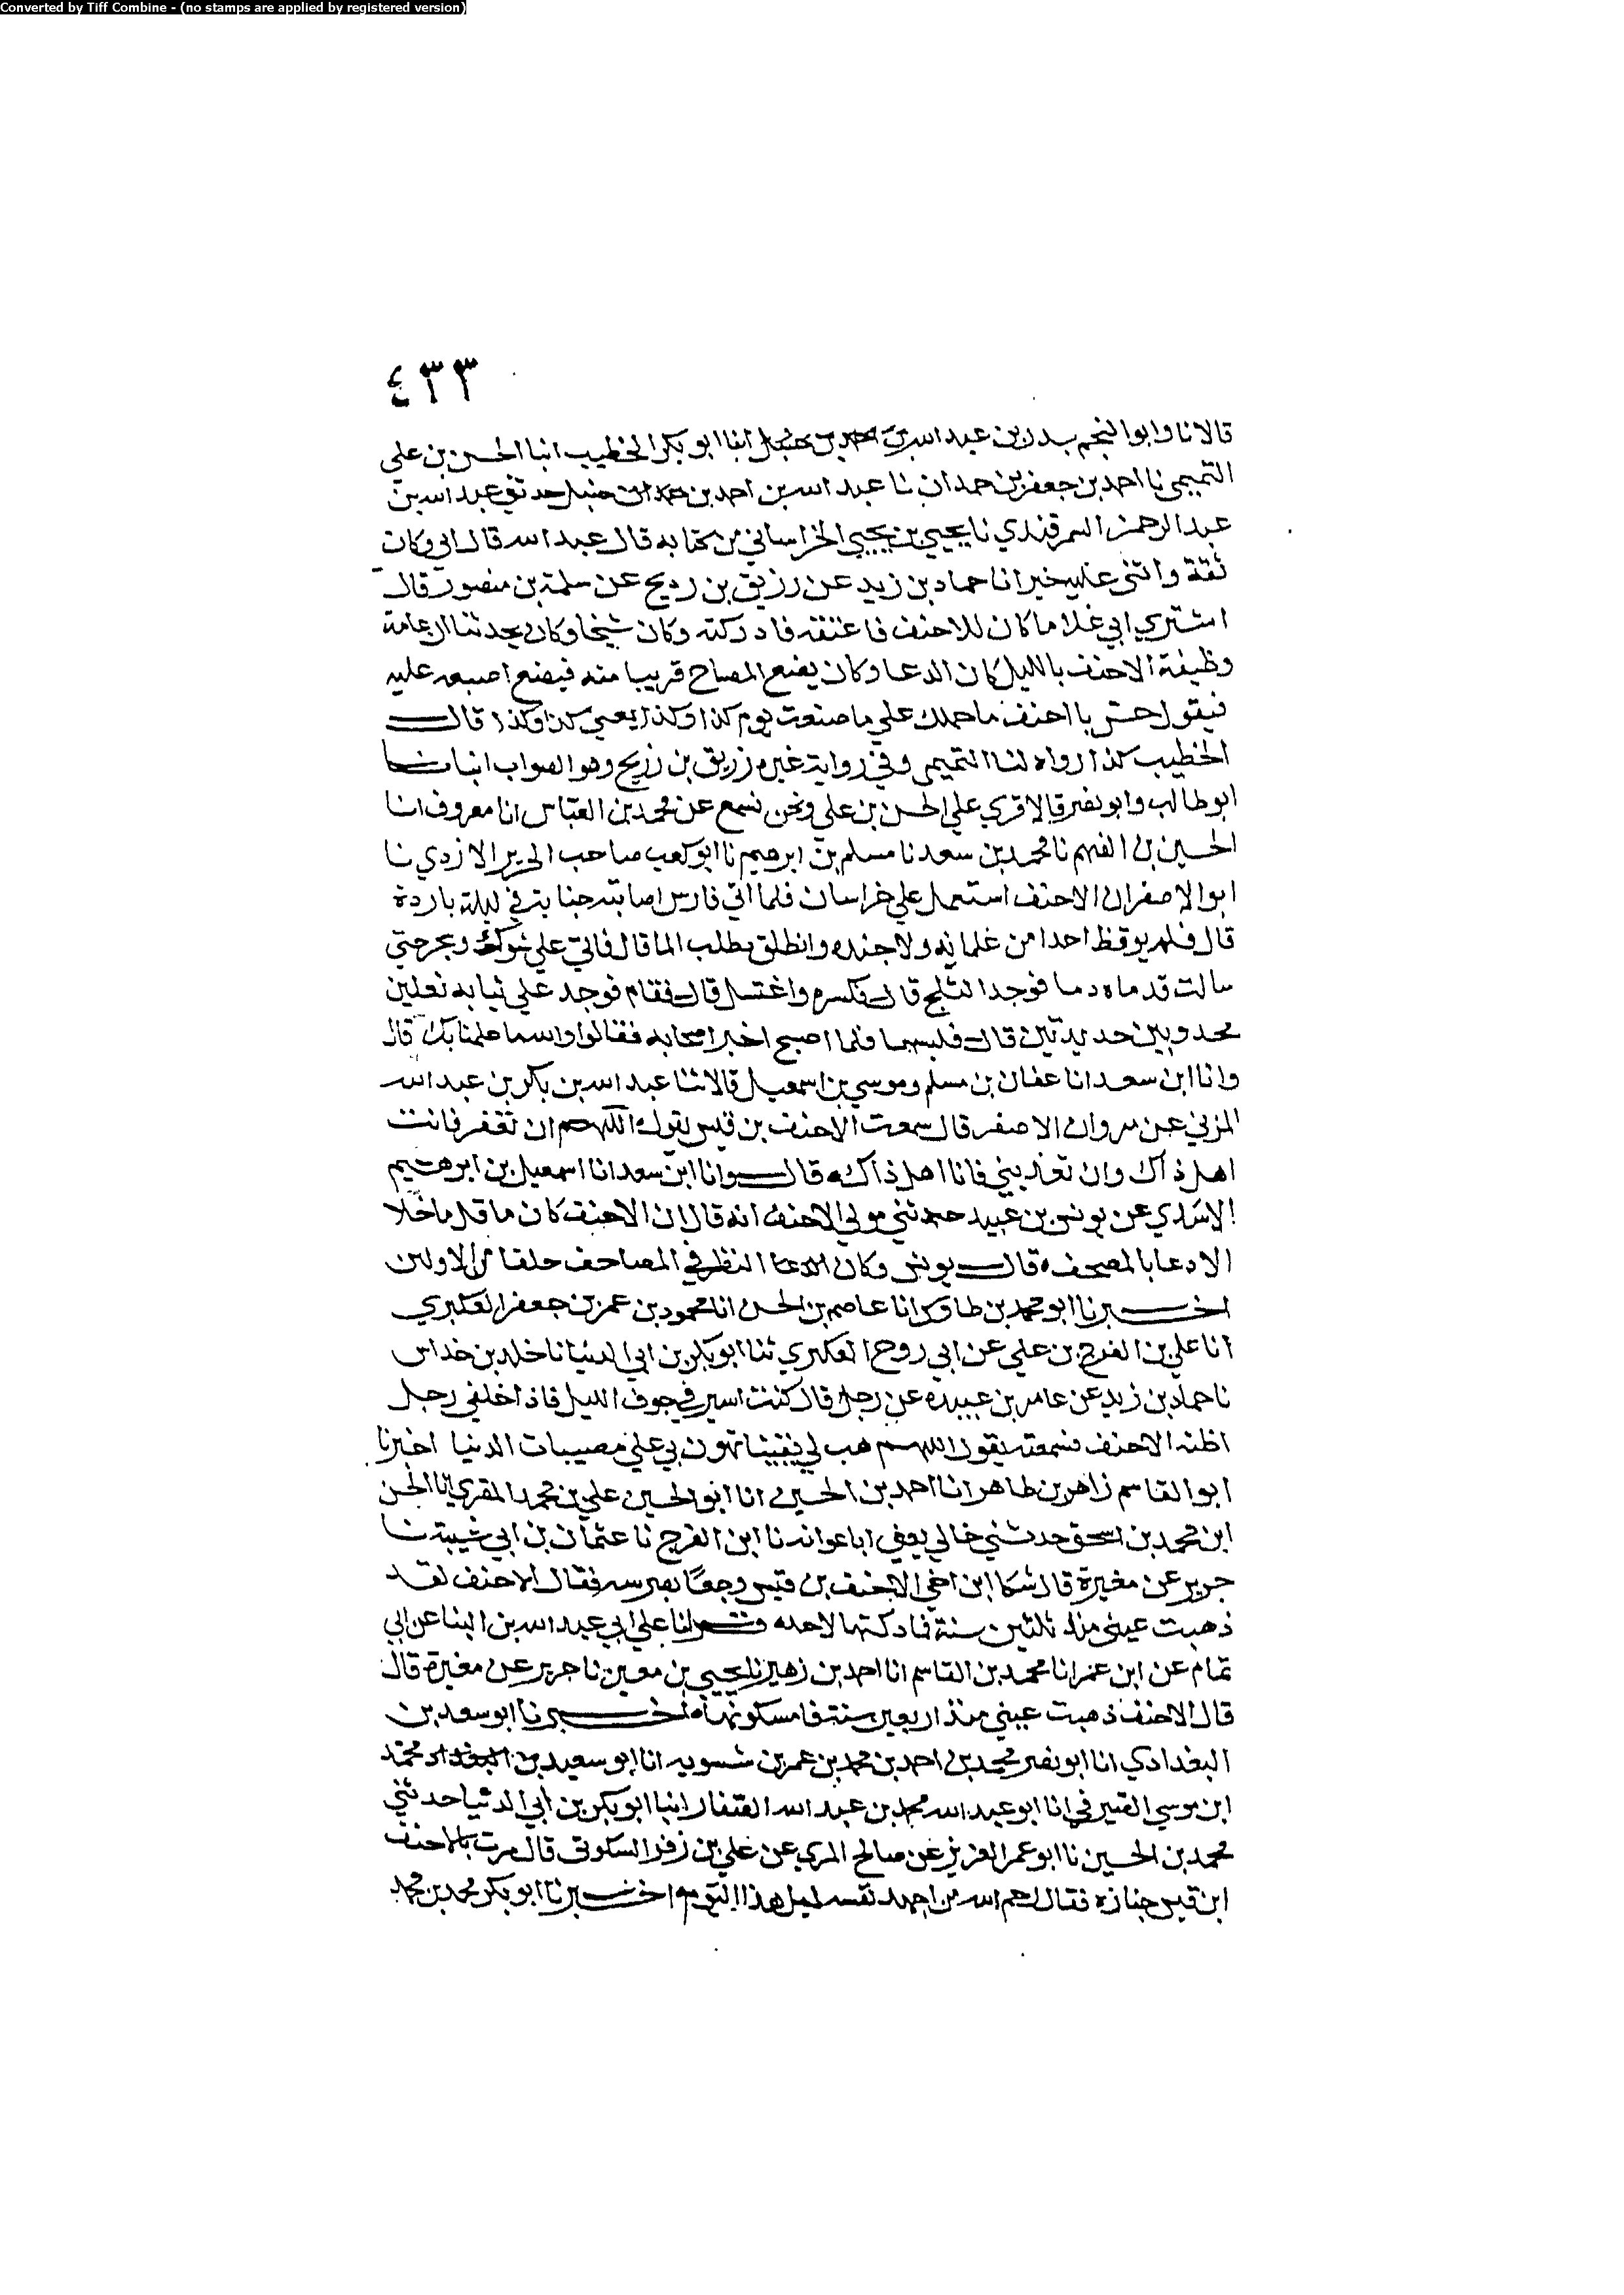 Converted by Tiff Combine - (no stamps are applied by registered version)
٤٣٣
قالا نا وابو النجم بدر بن عبد الله انبا ابو بكر الخطيب انبا الحسن بن علي
التميمي نا احمد بن جعفر بن حمدان نا عبد الله بن احمد بن حنبل حدثني عبد الله بن
عبد الرحمن السمرقندي نا يحيي بن يحيي الخراساني من كتابه قال عبد الله قال ابي وكان
ثقة واثني عليه خيرا نا حماد بن زيد عن رزيق بن رديح عن سلمة بن منصور قال
اشتري ابي غلاما كان للاحنف فاعتقه فادركته وكان شيخا وكان يحدثنا ان عامة
وظيفة الاحنف بالليل كان الدعا وكان يضع المصباح قريبا منه فيضع اصبعه عليه
فيقول حس يا احنف ما حملك علي ما صنعت يوم كذا وكذا يعني كذا وكذا قال
الخطيب كذا رواه لنا التميمي وفي رواية غيره زريق بن رديح وهو الصواب انبانا
ابو طالب وابو نصر قالا قري علي الحسن بن علي ونحن نسمع عن محمد بن العباس انا معروف انا
الحسين بن الفهم نا محمد بن سعد نا مسلم بن ابرهيم نا ابو كعب صاحب الحرير الازدي نا
ابو الاصفر ان الاحنف استعمل علي خراسان فلما اتي فارس اصابته جنابة في ليلة باردة
قال فلم يوقظ احدا من غلمانه ولا جنده وانطلق يطلب الما قال فاتي علي شوك وشجر حتي
سالت قدماه دما فوجد الثلج قال فكسره واغتسل قال فقام فوجد علي ثيابه نعلين
محدوبين جديدتين قال فلبسهما فلما اصبح اخبر اصحابه فقالوا والله ما علمنا بك قال
وانا ابن سعد انا عفان بن مسلم وموسي بن اسمعيل قالا ثنا عبد الله بن بكر بن عبد الله
المزني عن مروان الاصفر قال سمعت الاحنف بن قيس يقول اللهم ان تغفر فانت
اهل ذاك وان تعذبني فانا اهل ذاك قال وانا ابن سعد انا اسمعيل بن ابرهيم
الاسدي عن يونس بن عبيد حدثني مولي الاحنف انه قال ان الاحنف كان ما قل ما خلا
الا دعا بالمصحف قال يونس وكان النظر في المصاحف خلقا من الاولين
اخبرنا ابو محمد بن طاوس انا عاصم بن الحسن انا محمود بن عمر بن جعفر العكبري
انا علي بن الفرج بن علي عن ابي روح العكبري ثنا ابو بكر بن ابي الدنيا نا خلد بن خداس
نا حماد بن زيد عن عامر بن عبيده عن رجل قال كنت اسير في جوف الليل فاذا خلفي رجل
اظنه الاحنف فسمعته يقول اللهم هب لي يقينا تهون بي علي مصيبات الدنيا اخبرنا
ابو القاسم زاهر بن طاهر انا احمد بن الحسين انا ابو الحسين علي بن محمد المقري انا الحسن
ابن محمد بن اسحق حدثني خالي يعني ابا عوانه نا ابن الفرج نا عثمان بن ابي شيبة نا
جرير عن مغيرة قال شكا ابن اخي الاحنف بن قيس وجعا بضرسه فقال الاحنف لقد
ذهبت عيني منذ ثلثين سنة فما ذكرتها لاحد وقرانا علي ابي عبد الله بن البنا عن ابي
تمام عن ابن عمر انا محمد بن القاسم انا احمد بن زهير نا يحيي بن معين نا جرير عن مغيرة قال
قال الاحنف ذهبت عيني منذ اربعين سنة فما شكوتها اخبرنا ابو سعد بن
البغدادي انا ابو نصر محمد بن احمد بن محمد بن عمر بن شسويه انا ابو سعيد محمد
ابن موسي الصيرفي انا ابو عبد الله محمد بن عبد الله الصفار انبا ابو بكر بن ابي الدنيا حدثني
محمد بن الحسين نا ابو عمر العزيز عن صالح المري عن علي بن زفر السكوني قال مرت بالاحنف
ابن قيس جنازه فقال رحم الله من اجهد نفسه لمثل هذا اليوم اخبرنا ابو بكر محمد بن محمد